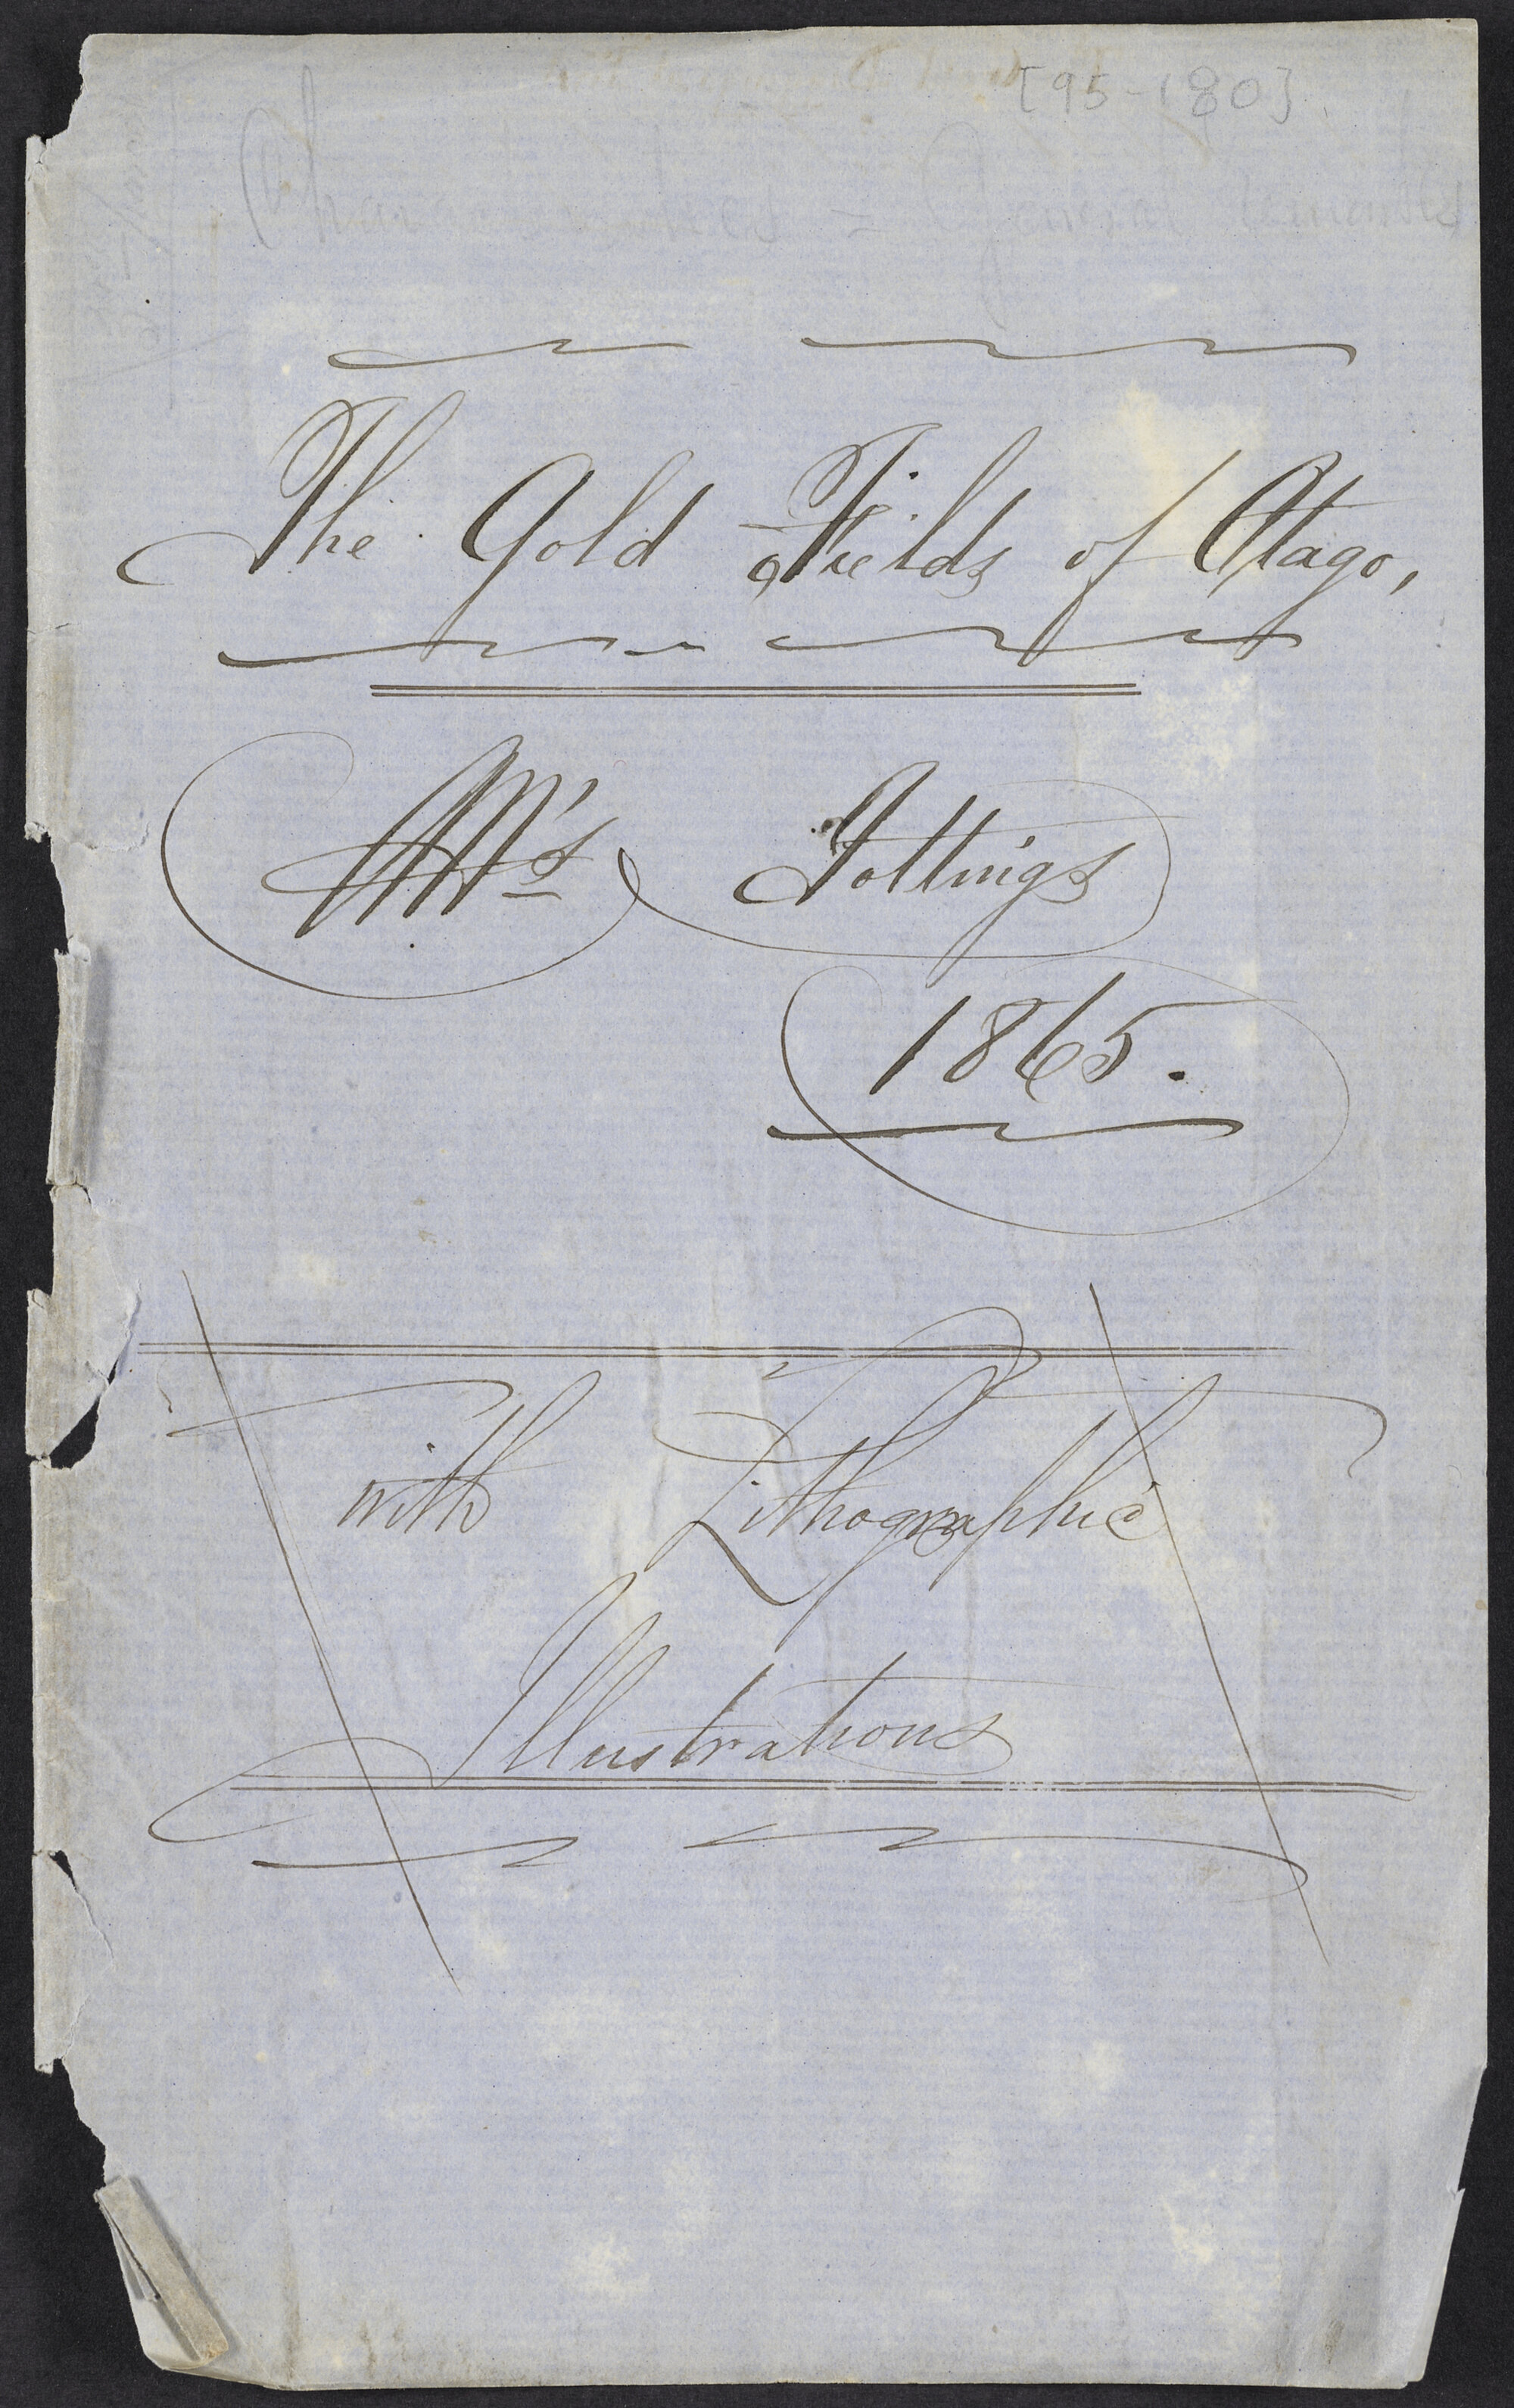 [95-180].
The Gold Fields of Otago,
M's Jottings
1865.
with Lithographic
Illustrations